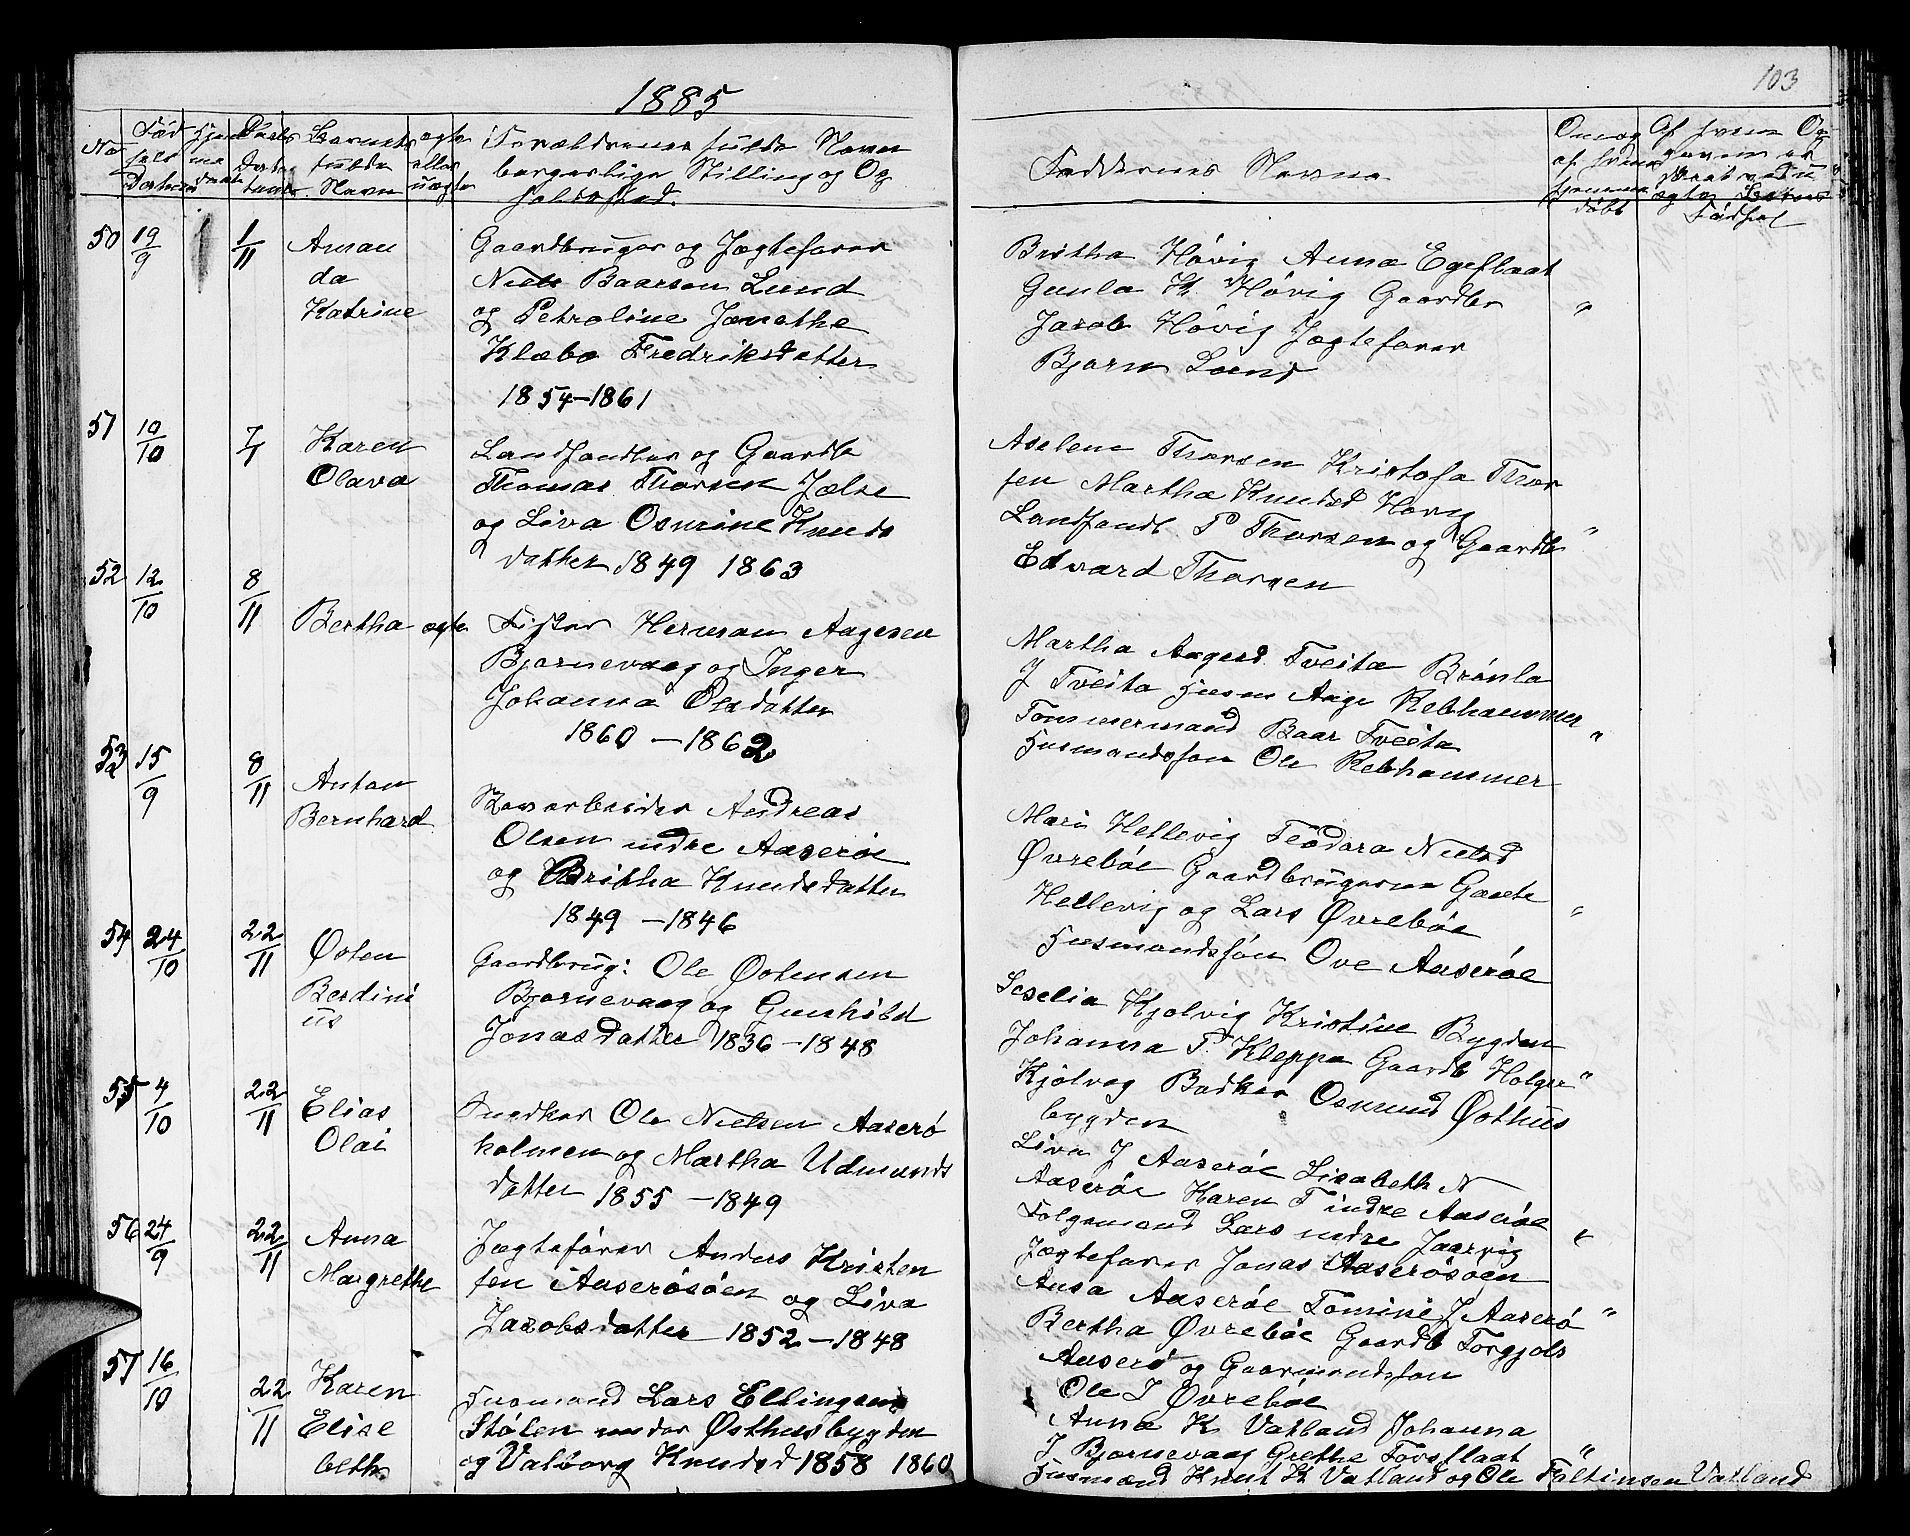 1885
103
No
Fød
sels
Datum
Hjem
me
døbt
Daabs
Datum
Barnets
fulde
Navn
ægte
eller
uægte
Forældrenes fulde Navn
borgerlige Stilling og Op
holdssted
Faddernes Navne
Om og
af hvem
hjemme
døbt
Af hvem Op
gaven er
skeet ved u
ægte Børns
Fødsel
50 19/9 1/11
Aman
da
Katrine
Gaardbruger og Jægtefører
Niels Baarsen Lund
og Petroline Jonethe
Klæbo Fredriksdatter
1854-1861
Britha Høvig Anna Egeflaat
Gunla K. Høvig Gaardbr
Jacob Høvig Jægtefører
Bjørn Lund
"
51 10/10 7/1
Karen
Olava
Landhandler og Gaardb
Thomas Thorsen Jælse
og Liva Osmine Knuds
datter 1849 1863
Aselene Thorsen Kristofa Thor
sen Martha Knudsd Høvig
Landhandl. T Thorsen og Gaardb
Edvard Thorsen
"
52 12/10 8/11
Bertha ægte
Fisker Herman Aagesen
Bjørnevaag og Inger
Johanna Olsdatter
1860 - 1862
Martha Aagesd. Tveita Brønla
J Tveita Husm Aage Rebhammer
Tømmermand Baar Tveita
Husmandssøn Ole Rebhammer
"
53 15/9 8/11
Anton
Bernhard
Skovarbeider Andreas
Olsen indre Aaserøe
og Britha Knudsdatter
1849 - 1846
Mari Hellevig Teodora Nielsd
Øvrebøe Gaardbrugerne Gaute
Hellevig og Lars Øvrebøe
Husmandssøn Ove Aaserøe
"
54 24/10 22/11
Østen
Berdini
us
Gaardbrug: Ole Østensen
Bjørnevaag og Gunhild
Jonasdatter 1836-1848
Seselia Kjølvig Kristine Bygden
Johanna T. Kleppe Gaardb Holger
Kjølvig Bødker Osmund Østhus
bygden
"
55 4/10 22/11
Elias
Olai
Snedker Ole Nielsen Aaserø
holmen og Martha Udmunds
datter 1855 - 1849
Liva J Aaserøe Lisabeth N
Aaserøe Karen T indre Aaserøe
Følgemand Lars indre Jaarvig
Jægtefører Jonas Aaserøsøen
"
56 24/9 22/11
Anna
Margrethe
Jægtefører Anders Kristen
sen Aaserøsøen og Liva
Jacobsdatter 1852-1848
Ansa Aaserøe Tomine J Aaserø
Bertha Øvrebøe Gaardb Torgjols
Aaserø og Gaarmandssøn
Ole J Øvrebøe
"
57 16/10 22/11
Karen
Elise
beth
Husmand Lars Ellingsen
Stølen under Østhusbygden
og Valborg Knudsd 1858 1860
Anna K Vatland Johanna
J Bjørnevaag Grethe Torsflaat
Husmænd Knut K Vatland og Ole Foltinsen Vatland
"